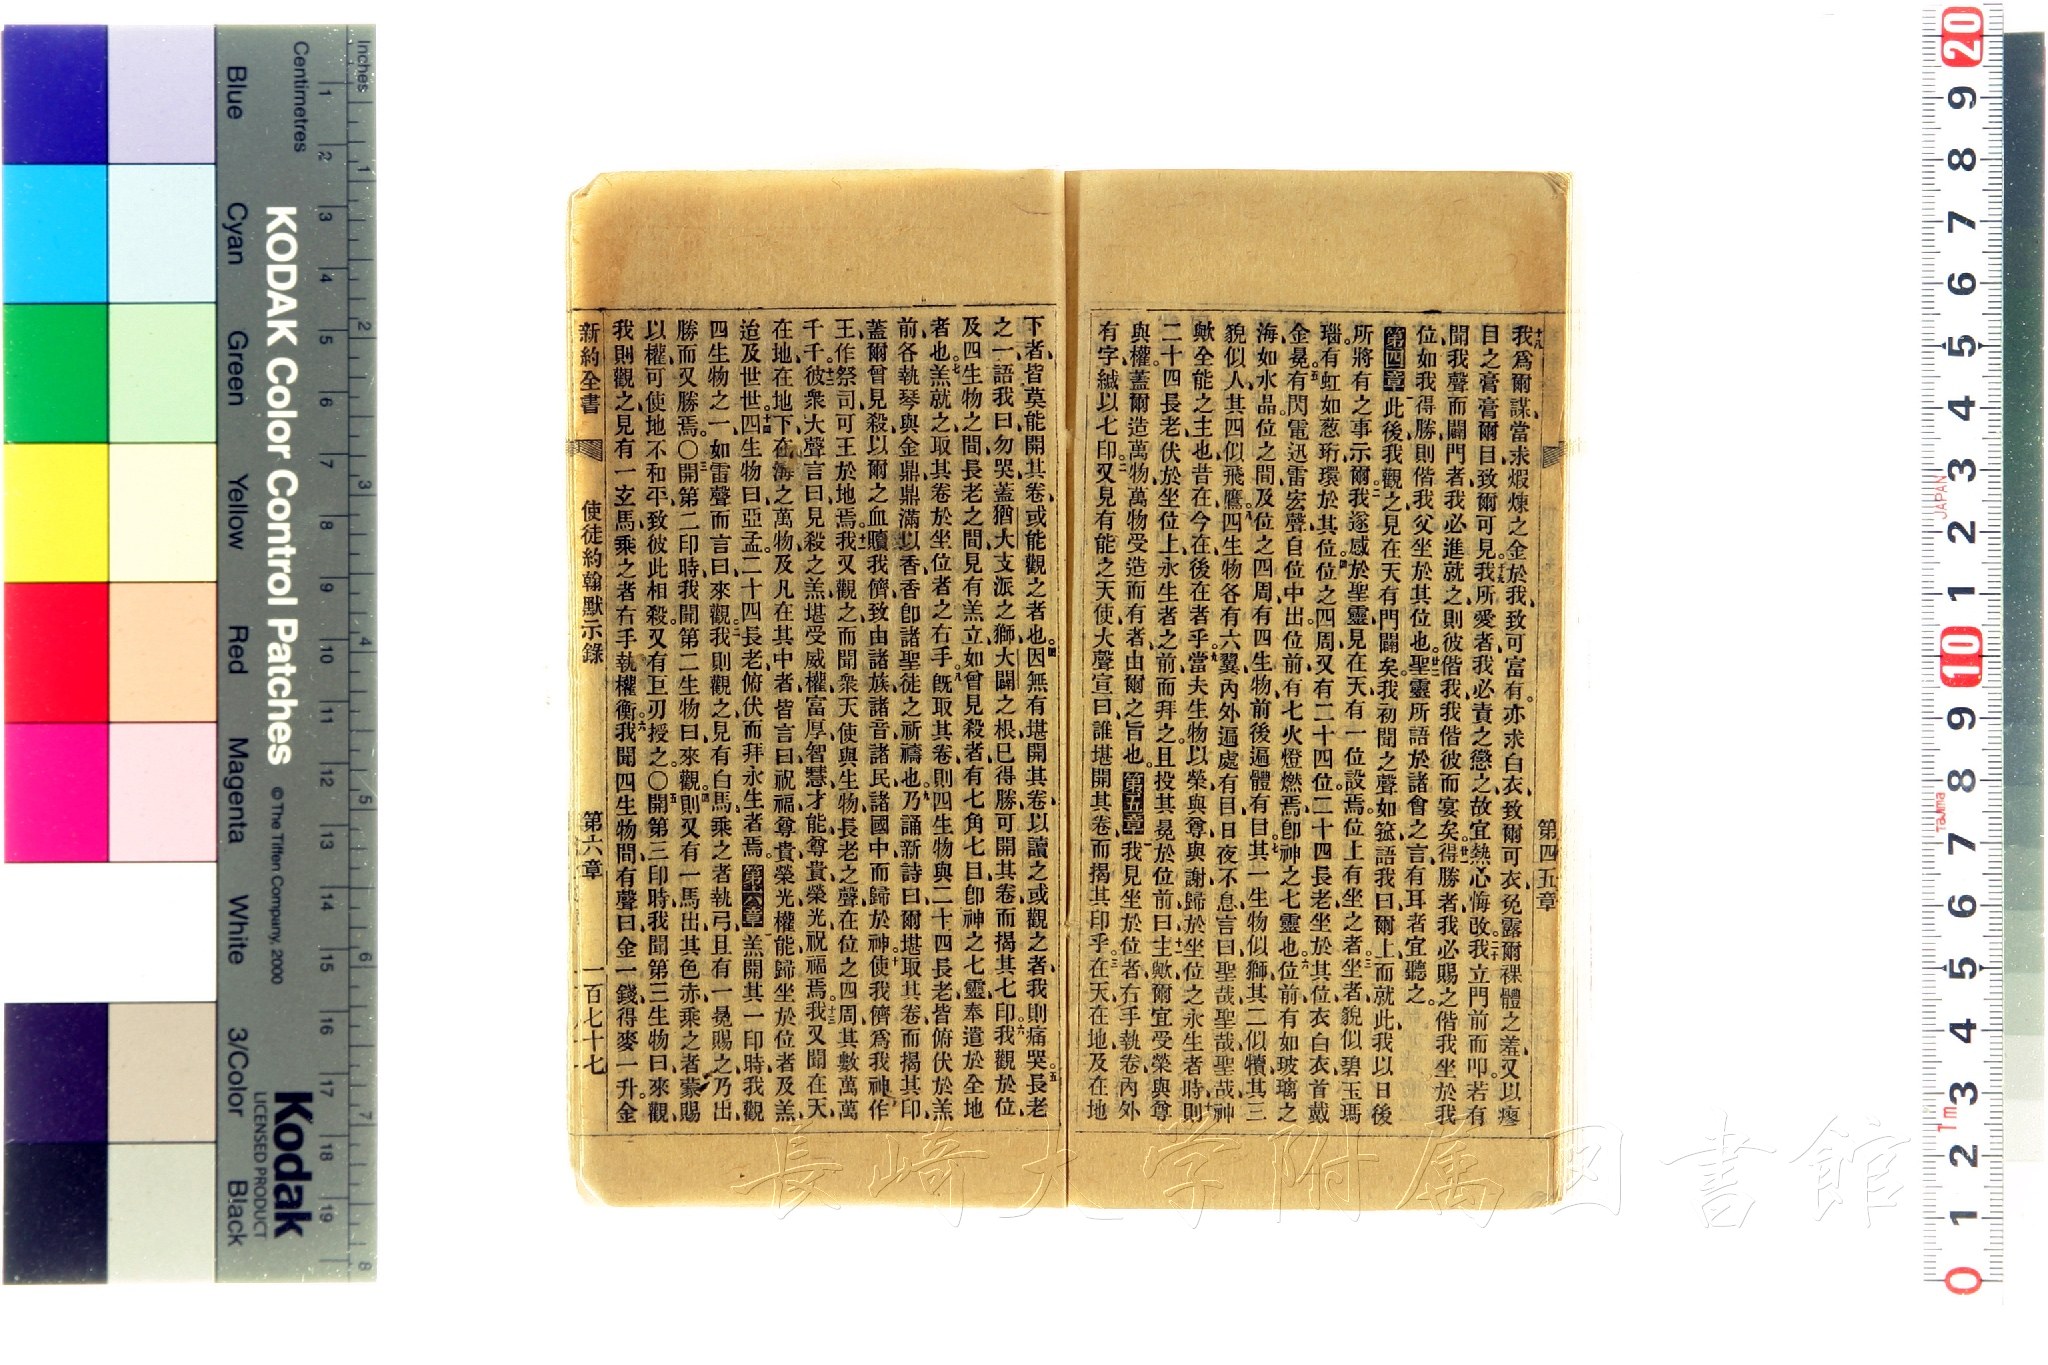 十八我爲爾謀當求煅煉之金於我致可富有亦求白衣致爾可衣免露爾裸體之羞又以瘳
目之膏膏爾目致爾可見十九我所愛者我必責之懲之故宜熱心悔改二十我立門前而叩若有
聞我聲而闢門者我必進就之則彼偕我我偕彼而宴矣廿一得勝者我必賜之偕我坐於我
位如我得勝則偕我父坐於其位也廿二聖靈所語於諸會之言有耳者宜聽之
第四章一此後我觀之見在天有門闢矣我初聞之聲如箛語我曰爾上而就此我以日後
所將有之事示爾二我遂感於聖靈見在天有一位設焉位上有坐之者三坐者貌似碧玉瑪
瑙有虹如葱珩環於其位四位之四周又有二十四位二十四長老坐於其位衣白衣首戴
金冕五有閃電迅雷宏聲自位中出位前有七火燈燃焉卽神之七靈也六位前有如玻璃之
海如水晶位之間及位之四周有四生物前後遍體有目七其一生物似獅其二似犢其三
貌似人其四似飛鷹八四生物各有六翼內外遍處有目日夜不息言曰聖哉聖哉聖哉神
歟全能之主也昔在今在後在者乎九當夫生物以榮與尊與謝歸於坐位之永生者時十則
二十四長老伏於坐位上永生者之前而拜之且投其冕於位前曰十一主歟爾宜受榮與尊
與權蓋爾造萬物萬物受造而有者由爾之旨也第五章一我見坐於位者右手執卷內外
有字緘以七印二又見有能之天使大聲宣曰誰堪開其卷而揭其印乎三在天在地及在地
第四五章
下者皆莫能開其卷或能觀之者也四因無有堪開其卷以讀之或觀之者我則痛哭五長老
之一語我曰勿哭蓋猶大支派之獅大闢之根已得勝可開其卷而揭其七印六我觀於位
及四生物之間長老之間見有羔立如曾見殺者有七角七目卽神之七靈奉遣於全地
者也七羔就之取其卷於坐位者之右手八旣取其卷則四生物與二十四長老皆俯伏於羔
前各執琴與金鼎鼎滿以香香卽諸聖徒之祈禱也九乃誦新詩曰爾堪取其卷而揭其印
蓋爾曾見殺以爾之血贖我儕致由諸族諸音諸民諸國中而歸於神十使我儕爲我神作
王作祭司可王於地焉十一我又觀之而聞衆天使與生物長老之聲在位之四周其數萬萬
千千十二彼衆大聲言曰見殺之羔堪受威權富厚智慧才能尊貴榮光祝福焉十三我又聞在天
在地在地下在海之萬物及凡在其中者皆言曰祝福尊貴榮光權能歸坐於位者及羔
迨及世世十四四生物曰亞孟二十四長老俯伏而拜永生者焉第六章一羔開其一印時我觀
四生物之一如雷聲而言曰來觀二我則觀之見有白馬乘之者執弓且有一冕賜之乃出
勝而又勝焉〇三開第二印時我聞第二生物曰來觀四則又有一馬出其色赤乘之者蒙賜
以權可使地不和平致彼此相殺又有巨刃授之〇五開第三印時我聞第三生物曰來觀
我則觀之見有一玄馬乘之者右手執權衡六我聞四生物間有聲曰金一錢得麥一升金
新約全書 使徒約翰默示錄 第六章 一百七十七
KODAK Color Control Patches © The Tiffen Company, 2000
Kodak
LICENSED PRODUCT
Inches 1 2 3 4 5 6 7 8
Centimetres 1 2 3 4 5 6 7 8 9 10 11 12 13 14 15 16 17 18 19
Blue Cyan Green Yellow Red Magenta White 3/Color Black
20 9 8 7 6 5 4 3 2 1 10 9 8 7 6 5 4 3 2 1 0
JAPAN
Tajima
長崎大学附属図書館